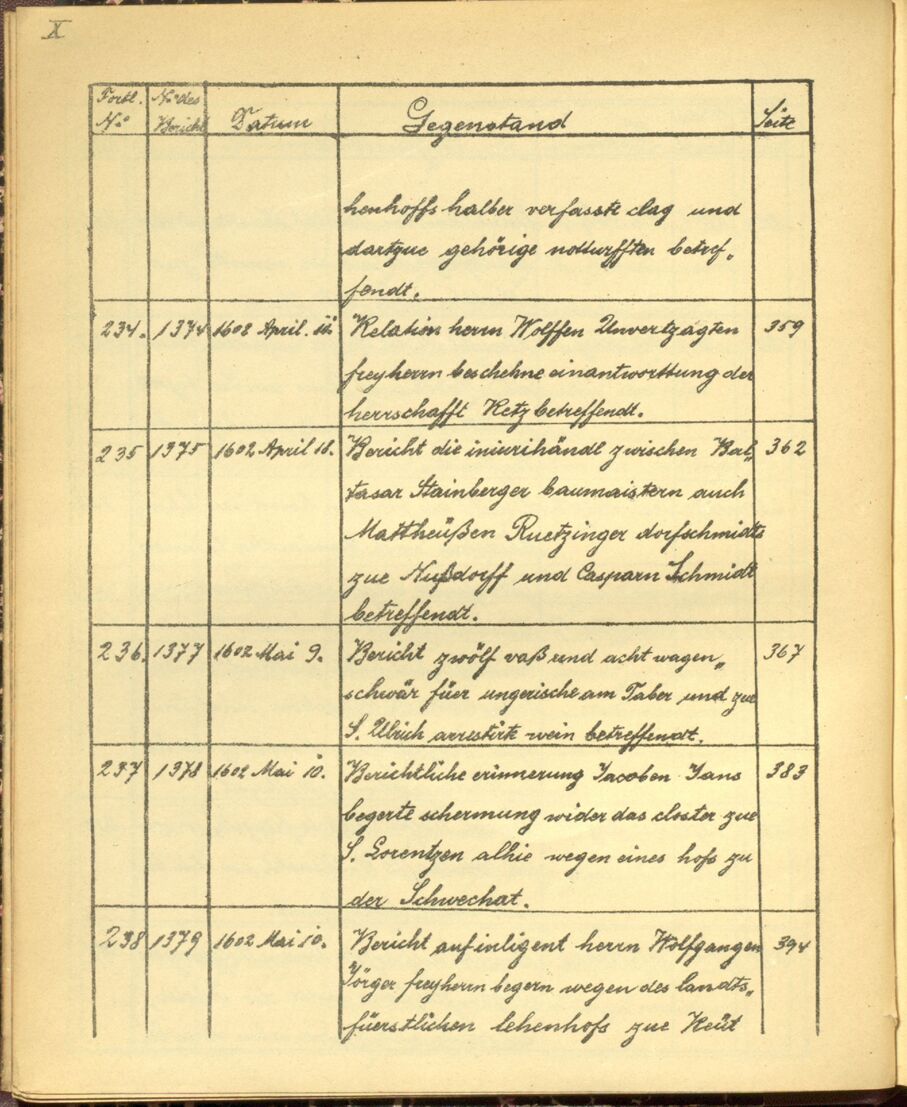 X
Fortl. No | No des Bericht | Datum | Gegenstand | Seite
henhoffs halber verfasste clag und
dartzue gehörige notturfften betref„
fendt.
234. 1374 1602 April. 11. Relation herrn Wolffen Unvertzagten 359
freyherrn beschehne einantworttung der
herrschafft Retz betreffendt.
235 1375 1602 April 18. Bericht die iniurihändl zwischen Bal„ 362
tasar Stainberger baumaistern auch
Mattheüßen Ruetzinger dorfschmidts
zue Nußdorff und Casparn Schmidt
betreffendt.
236. 1377 1602 Mai 9. Bericht zwölf vaß und acht wagen„ 367
schwär füer ungerische am Taber und zue
S. Ulrich arrestirte wein betreffendt.
237 1378 1602 Mai 10. Berichtliche erinnerung Jacoben Jans 383
begerte schermung wider das closter zue
S. Lorentzen alhie wegen eines hofs zu
der Schwechat.
238 1379 1602 Mai 10. Bericht auf inligent herrn Wolfgangen 394
Jörger freyherrn begern wegen des landts„
füerstlichen lehenhofs zue Reüt